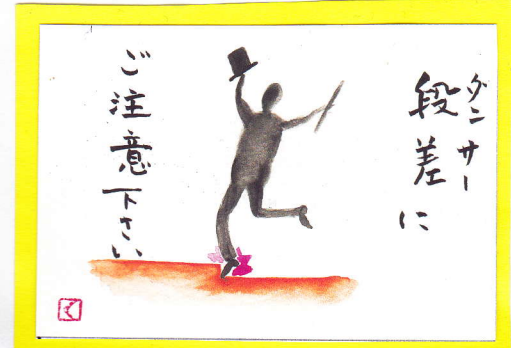 段差に
ダンサー
ご注意下さい